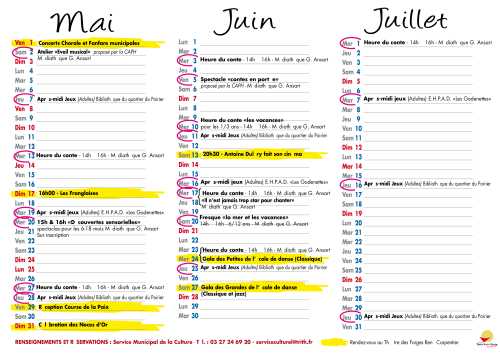 Mai
Ven 1 Concerts Chorale et Fanfare municipales
Sam 2 Atelier «Eveil musical» proposé par la CAPH
Dim 3 M diath que G. Ansart
Lun 4
Mar 5
Mer 6
Jeu 7 Apr s-midi Jeux (Adultes) Biblioth que du quartier du Poirier
Ven 8
Sam 9
Dim 10
Lun 11
Mar 12
Mer 13 Heure du conte - 14h 16h - M diath que G. Ansart
Jeu 14
Ven 15
Sam 16
Dim 17 16h00 - Les Franglaises
Lun 18
Mar 19 Apr s-midi Jeux (Adultes) E.H.P.A.D. «les Godenettes»
Mer 20 15h & 16h «D couvertes sensorielles»
Jeu 21 spectacles pour les 6-18 mois M diath que G. Ansart
Ven 22 Sur inscription
Sam 23
Dim 24
Lun 25
Mar 26
Mer 27 Heure du conte - 14h 16h - M diath que G. Ansart
Jeu 28 Apr s-midi Jeux (Adultes) Biblioth que du quartier du Poirier
Ven 29 R ception Course de la Paix
Sam 30
Dim 31 C l bration des Noces d'Or
Juin
Lun 1
Mar 2
Mer 3 Heure du conte - 14h 16h - M diath que G. Ansart
Jeu 4
Ven 5 Spectacle «contes en port e»
Sam 6 proposé par la CAPH - M diath que G. Ansart
Dim 7
Lun 8
Mar 9
Mer 10 Heure du conte «les vacances»
pour les 1/3 ans - 14h 16h - M diath que G. Ansart
Jeu 11 Apr s-midi Jeux (Adultes) Biblioth que du quartier du Poirier
Ven 12
Sam 13 20h30 - Antoine Dul ry fait son cin ma
Dim 14
Lun 15
Mar 16 Apr s-midi Jeux (Adultes) E.H.P.A.D. «les Godenettes»
Mer 17 Heure du conte - 14h 16h - M diath que G. Ansart
Jeu 18 «Il n'est jamais trop star pour chanter»
Ven 19 M diath que G. Ansart
Sam 20 Fresque «la mer et les vacances»
Dim 21 14h - 16h - 6/12 ans - M diath que G. Ansart
Lun 22
Mar 23 Heure du conte - 14h 16h - M diath que G. Ansart
Mer 24 Gala des Petites de l' cole de danse (Classique)
Jeu 25 Apr s-midi Jeux (Adultes) Biblioth que du quartier du Poirier
Ven 26
Sam 27 Gala des Grandes de l' cole de danse
Dim 28 (Classique et jazz)
Lun 29
Mar 30
Juillet
Mer 1 Heure du conte - 14h 16h - M diath que G. Ansart
Jeu 2
Ven 3
Sam 4
Dim 5
Lun 6
Mar 7 Apr s-midi Jeux (Adultes) E.H.P.A.D. «les Godenettes»
Mer 8
Jeu 9
Ven 10
Sam 11
Dim 12
Lun 13
Mar 14
Mer 15
Jeu 16 Apr s-midi Jeux (Adultes) Biblioth que du quartier du Poirier
Ven 17
Sam 18
Dim 19
Lun 20
Mar 21
Mer 22
Jeu 23
Ven 24
Sam 25
Dim 26
Lun 27
Mar 28
Mer 29
Jeu 30 Apr s-midi Jeux (Adultes) Biblioth que du quartier du Poirier
Ven 31
Rendez-vous au Th tre des Forges Ren Carpentier
RENSEIGNEMENTS ET R SERVATIONS : Service Municipal de la Culture - T l. : 03 27 24 69 20 - serviceculturel@trith.fr